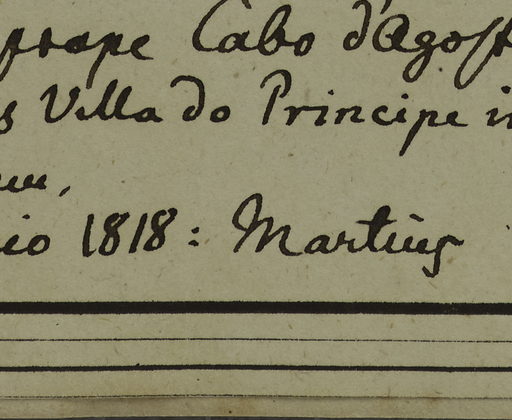 prope Cabo d'Agost
s Villa do Principe in
um,
nio 1818: Martius